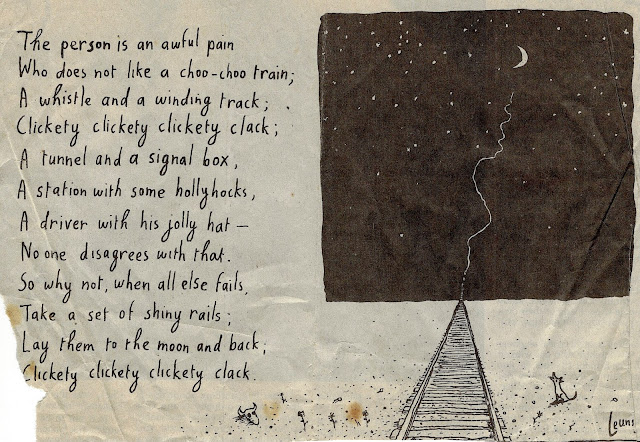 The person is an awful pain
Who does not like a choo-choo train;
A whistle and a winding track;
Clickety clickety clickety clack;
A tunnel and a signal box,
A station with some hollyhocks,
A driver with his jolly hat —
No one disagrees with that.
So why not, when all else fails,
Take a set of shiny rails;
Lay them to the moon and back,
Clickety clickety clickety clack.
Leunig